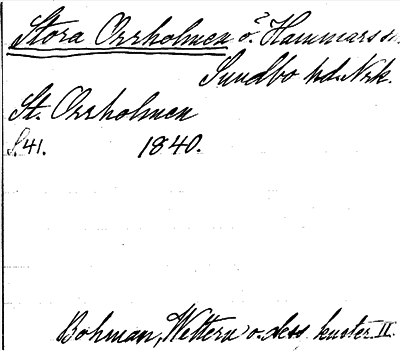 Stora Orrholmen ö. Hammars sn.
Sundbo hd. Nrk.
St. Orrholmen
S. 41. 1840.
Bohman, Wettern o. dess kuster. II.